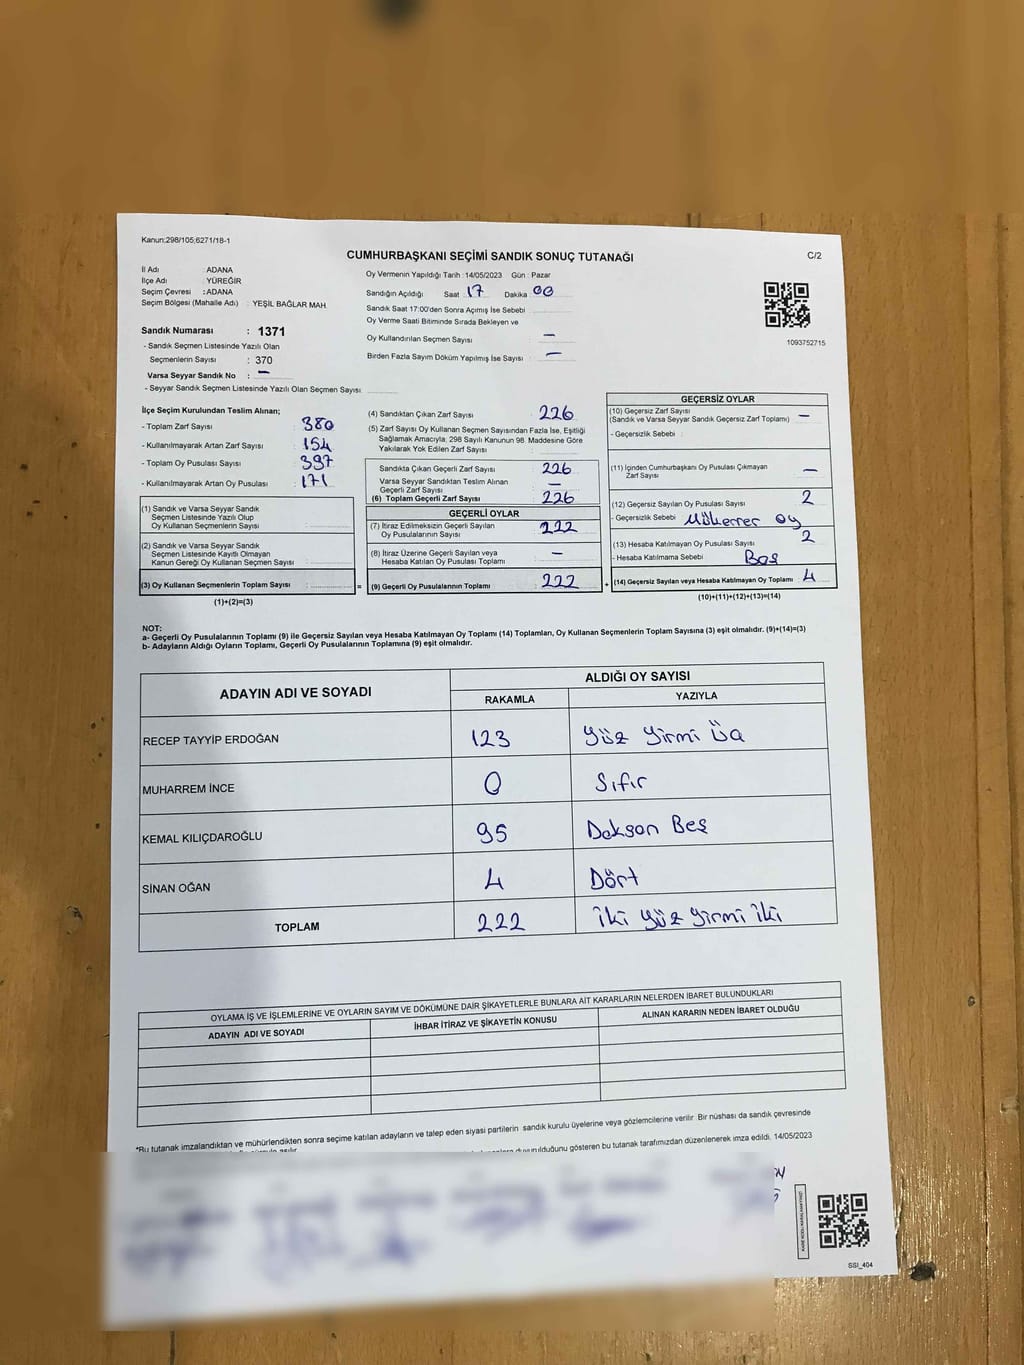 Kanun:298/105;6271/18-1
CUMHURBAŞKANI SEÇİMİ SANDIK SONUÇ TUTANAĞI
C/2
İl Adı : ADANA
İlçe Adı : YÜREĞİR
Seçim Çevresi : ADANA
Seçim Bölgesi (Mahalle Adı) : YEŞİL BAĞLAR MAH.
Sandık Numarası : 1371
- Sandık Seçmen Listesinde Yazılı Olan
Seçmenlerin Sayısı : 370
Varsa Seyyar Sandık No : –
- Seyyar Sandık Seçmen Listesinde Yazılı Olan Seçmen Sayısı
Oy Vermenin Yapıldığı Tarih : 14/05/2023 Gün : Pazar
Sandığın Açıldığı Saat 17 Dakika 00
Sandık Saat 17:00'den Sonra Açımış İse Sebebi
Oy Verme Saati Bitiminde Sırada Bekleyen ve
Oy Kullandırılan Seçmen Sayısı –
Birden Fazla Sayım Döküm Yapılmış İse Sayısı –
1093752715
İlçe Seçim Kurulundan Teslim Alınan;
- Toplam Zarf Sayısı : 380
- Kullanılmayarak Artan Zarf Sayısı : 154
- Toplam Oy Pusulası Sayısı : 397
- Kullanılmayarak Artan Oy Pusulası : 171
(1) Sandık ve Varsa Seyyar Sandık
Seçmen Listesinde Yazılı Olup
Oy Kullanan Seçmenlerin Sayısı
(2) Sandık ve Varsa Seyyar Sandık
Seçmen Listesinde Kayıtlı Olmayan
Kanun Gereği Oy Kullanan Seçmen Sayısı
(3) Oy Kullanan Seçmenlerin Toplam Sayısı =
(1)+(2)=(3)
(4) Sandıktan Çıkan Zarf Sayısı : 226
(5) Zarf Sayısı Oy Kullanan Seçmen Sayısından Fazla İse, Eşitliği
Sağlamak Amacıyla, 298 Sayılı Kanunun 98. Maddesine Göre
Yakılarak Yok Edilen Zarf Sayısı
Sandıkta Çıkan Geçerli Zarf Sayısı : 226
Varsa Seyyar Sandıktan Teslim Alınan
Geçerli Zarf Sayısı –
(6) Toplam Geçerli Zarf Sayısı : 226
GEÇERLİ OYLAR
(7) İtiraz Edilmeksizin Geçerli Sayılan
Oy Pusulalarının Sayısı 222
(8) İtiraz Üzerine Geçerli Sayılan veya
Hesaba Katılan Oy Pusulası Toplamı –
(9) Geçerli Oy Pusulalarının Toplamı : 222 +
GEÇERSİZ OYLAR
(10) Geçersiz Zarf Sayısı
(Sandık ve Varsa Seyyar Sandık Geçersiz Zarf Toplamı) –
- Geçersizlik Sebebi :
(11) İçinden Cumhurbaşkanı Oy Pusulası Çıkmayan
Zarf Sayısı –
(12) Geçersiz Sayılan Oy Pusulası Sayısı 2
- Geçersizlik Sebebi Mükerrer oy
(13) Hesaba Katılmayan Oy Pusulası Sayısı 2
- Hesaba Katılmama Sebebi Boş
(14) Geçersiz Sayılan veya Hesaba Katılmayan Oy Toplamı 4
(10)+(11)+(12)+(13)=(14)
NOT:
a- Geçerli Oy Pusulalarının Toplamı (9) ile Geçersiz Sayılan veya Hesaba Katılmayan Oy Toplamı (14) Toplamları, Oy Kullanan Seçmenlerin Toplam Sayısına (3) eşit olmalıdır. (9)+(14)=(3)
b- Adayların Aldığı Oyların Toplamı, Geçerli Oy Pusulalarının Toplamına (9) eşit olmalıdır.
ADAYIN ADI VE SOYADI
ALDIĞI OY SAYISI
RAKAMLA YAZIYLA
RECEP TAYYİP ERDOĞAN 123 yüz yirmi üç
MUHARREM İNCE 0 Sıfır
KEMAL KILIÇDAROĞLU 95 Doksan Beş
SİNAN OĞAN 4 Dört
TOPLAM 222 iki yüz yirmi iki
OYLAMA İŞ VE İŞLEMLERİNE VE OYLARIN SAYIM VE DÖKÜMÜNE DAİR ŞİKAYETLERLE BUNLARA AİT KARARLARIN NELERDEN İBARET BULUNDUKLARI
ADAYIN ADI VE SOYADI İHBAR İTİRAZ VE ŞİKAYETİN KONUSU ALINAN KARARIN NEDEN İBARET OLDUĞU
*Bu tutanak imzalandıktan ve mühürlendikten sonra seçime katılan adayların ve talep eden siyasi partilerin sandık kurulu üyelerine veya gözlemcilerine verilir. Bir nüshası da sandık çevresinde
duyurulduğunu gösteren bu tutanak tarafımızdan düzenlenerek imza edildi. 14/05/2023
SSI_404